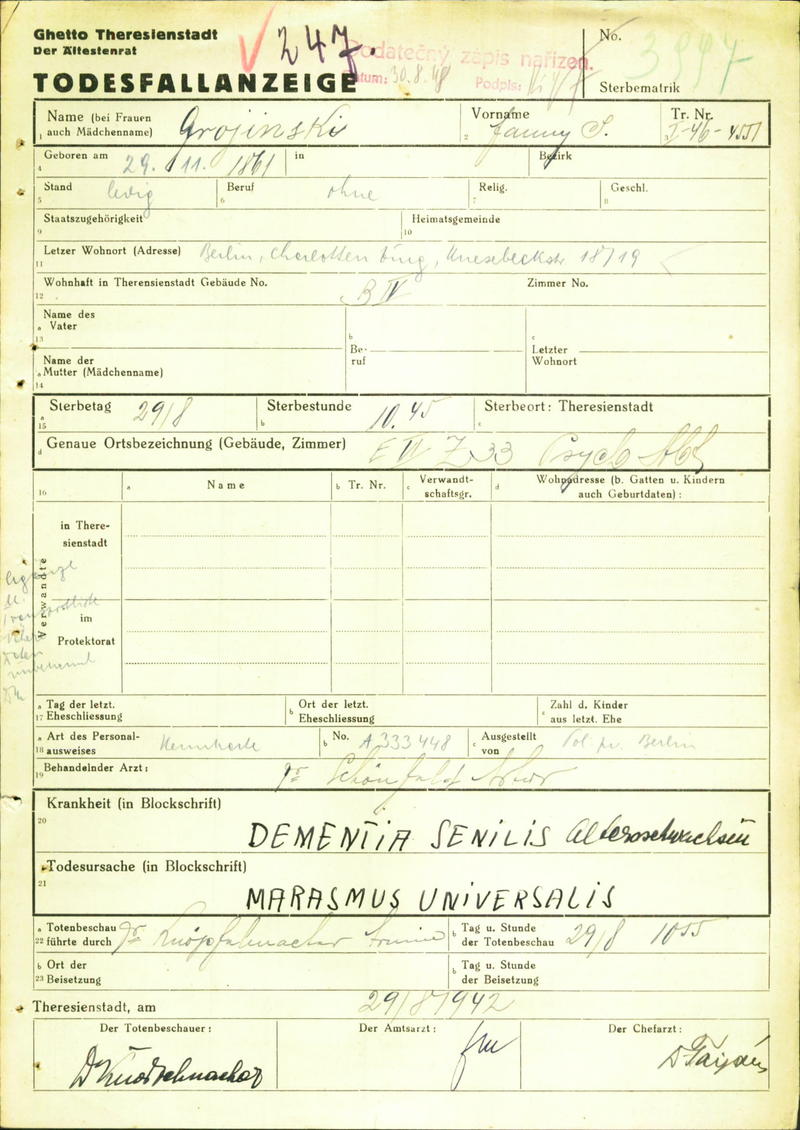 Ghetto Theresienstadt
Der Ältestenrat
247.
Dodatečný zápis nařízen.
Datum: 30.8.48 Podpis:
TODESFALLANZEIGE
No.
Sterbematrik
Name (bei Frauen
1 auch Mädchenname) Grojinski
2 Vorname
S.
3 Tr. Nr.
I-46-4551
4 Geboren am 29. 11. 1861 in Bezirk
5 Stand ledig 6 Beruf ohne 7 Relig. 8 Geschl.
9 Staatszugehörigkeit 10 Heimatsgemeinde
11 Letzer Wohnort (Adresse) Berlin, Charlottenburg, Knesebeckstr 18/19
12 Wohnhaft in Theresienstadt Gebäude No. B IV Zimmer No.
Name des
a Vater
13
b Be-
ruf
c Letzter
Wohnort
Name der
a Mutter (Mädchenname)
14
a 15 Sterbetag 29/8 b Sterbestunde 10.45 c Sterbeort: Theresienstadt
d Genaue Ortsbezeichnung (Gebäude, Zimmer) E VI Z 33
16 a Name b Tr. Nr. c Verwandt-
schaftsgr. d Wohnadresse (b. Gatten u. Kindern
auch Geburtdaten):
Verwandte
in There-
sienstadt
im
Protektorat
a Tag der letzt.
17 Eheschliessung
b Ort der letzt.
Eheschliessung
c Zahl d. Kinder
aus letzt. Ehe
a Art des Personal-
18 ausweises Kennkarte
b No. A 333448
c Ausgestellt
von Pol. pr. Berlin
19 Behandelnder Arzt: Dr Schönfeld Artur
Krankheit (in Blockschrift)
20 DEMENTIA SENILIS Altersschwachsinn
Todesursache (in Blockschrift)
21 MARASMUS UNIVERSALIS
a Totenbeschau
22 führte durch Dr Knöpfelmacher
b Tag u. Stunde
der Totenbeschau 29/8 10 55
b Ort der
23 Beisetzung
b Tag u. Stunde
der Beisetzung
Theresienstadt, am 29/8 1942
Der Totenbeschauer: Der Amtsarzt: Der Chefarzt: